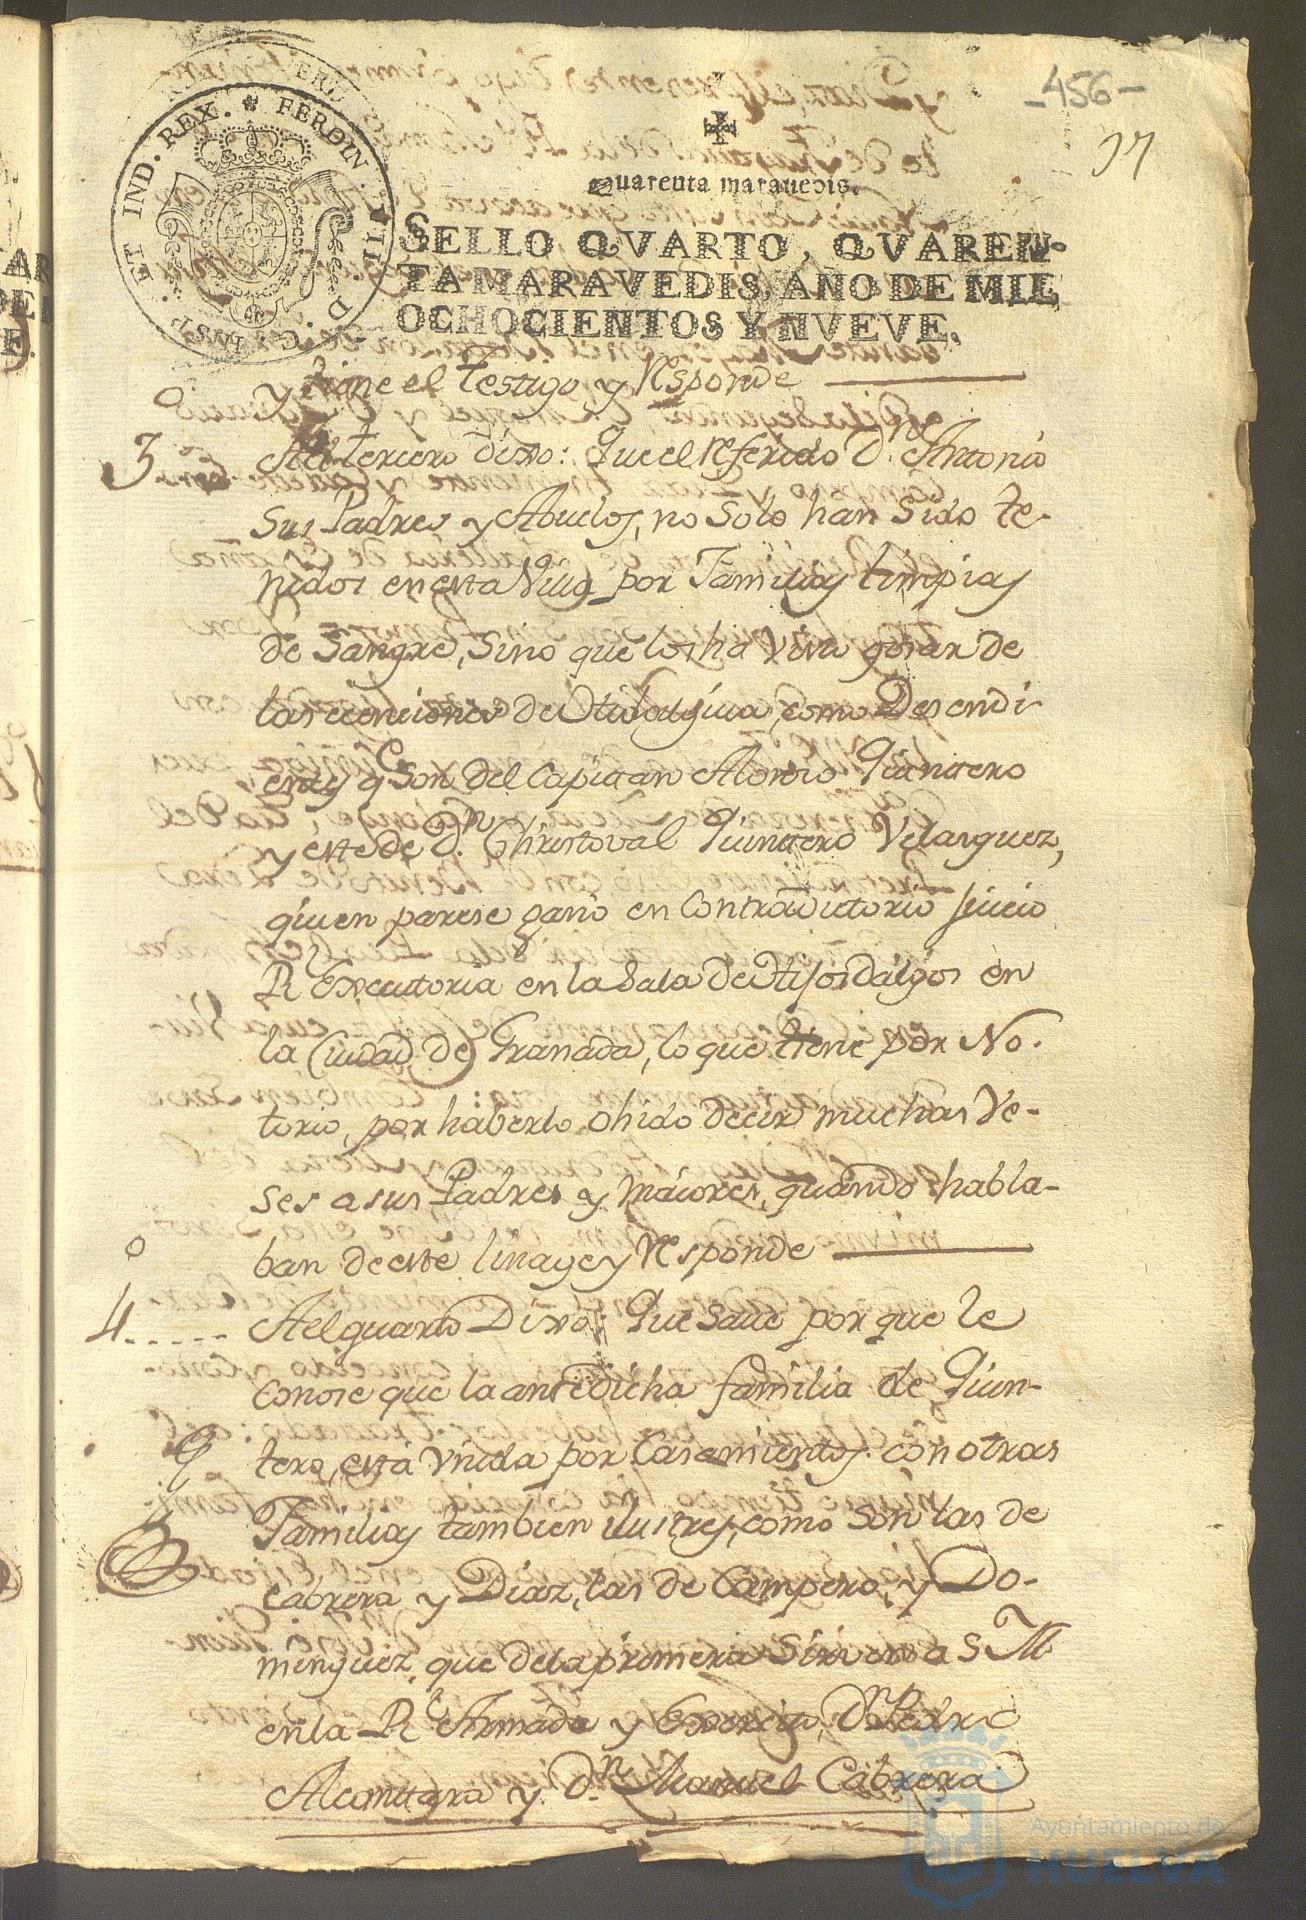 -456-
97
Quarenta maravedis.
SELLO QVARTO, QVAREN-
TA MARAVEDIS, AÑO DE MIL
OCHOCIENTOS Y NVEVE.
FERDIN. VII. D. G. HISP. ET IND. REX.
y tiene el Testigo, y Responde
3º Al tercero Dixo: Que el referido Dn. Antonio
sus Padres y Abuelos, no solo han sido te-
nidos en esta Villa por Familias limpias
de Sangre, sino que los ha visto gosar de
lasecenciones de Hidalguia, como Desendi-
entes qe. son del Capitan Alonso Quintero
y este de Dn. Christoval Quintero Velasquez,
quien parese ganó en Contradictorio Juicio
Rl. Executoria en la Sala de Hijosdalgos en
la Ciudad de Granada, lo que tiene por No-
torio, por haberlo ohido decir muchas Ve-
ses a sus Padres y maiores, quando habla-
ban de este linage y Responde
4º Al quarto Dixo: Que save por que le
conose que la antedicha familia de Quin-
tero, está Unida por Casamientos con otras
Familias tambien ilustres, como son las de
Cabrera y Diaz, las de Campero, y Do-
minguez, que de la primera Sirven a S M
en la Rl. Armada y Exercito, Dn. Pedro
Alcantara y Dn. Manuel Cabrera
Ayuntamiento de
HUELVA